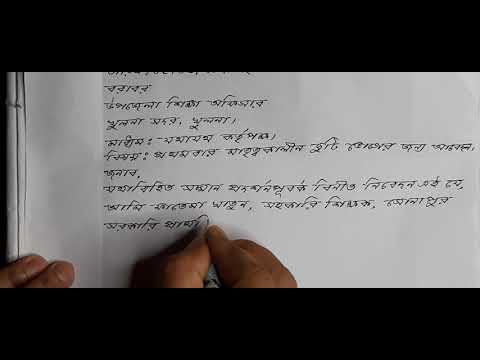 বরাবর
উপজেলা শিক্ষা অফিসার
খুলনা সদর, খুলনা।
মাধ্যম: যথাযথ কর্তৃপক্ষ।
বিষয়: প্রথমবার মাতৃত্বকালীন ছুটি ভোগের জন্য আবেদন।
জনাব,
যথাবিহিত সম্মান প্রদর্শনপূর্বক বিনীত নিবেদন এই যে,
আমি ফাতেমা খাতুন, সহকারি শিক্ষক, সোনাপুর
সরকারি প্রাথমি